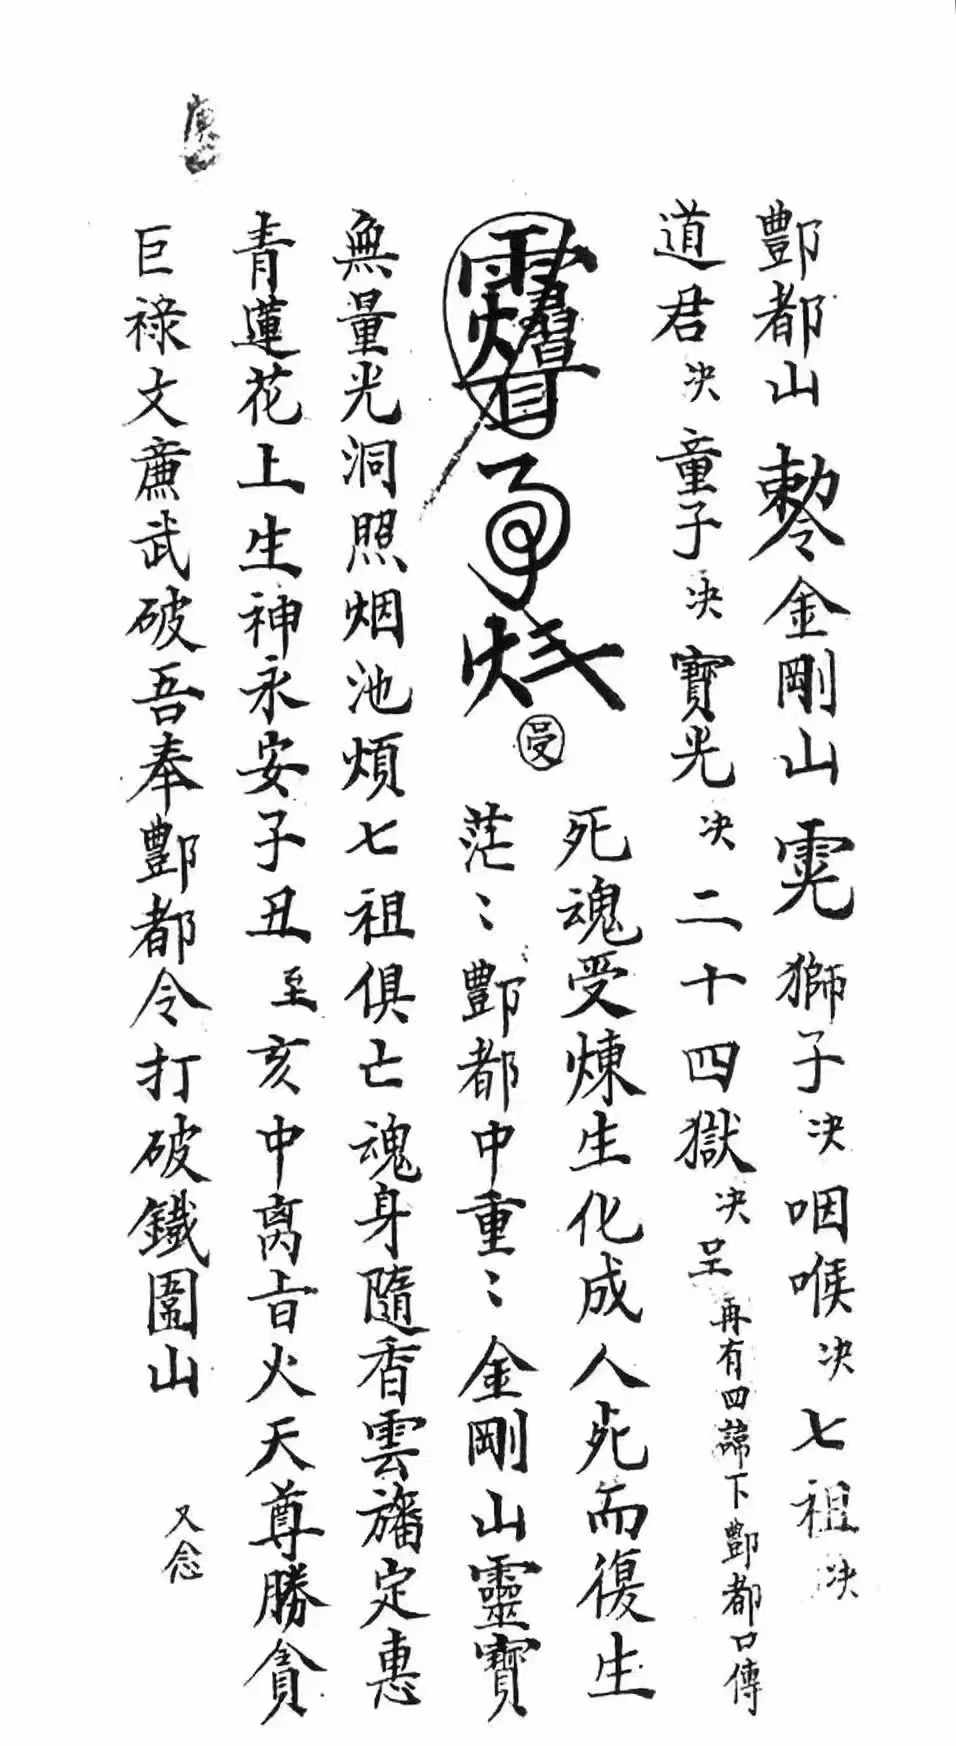 酆都山 勅令 金剛山 霐 獅子决 咽喉决 七祖决
道君决 童子决 寳光决 二十四獄决 呈 再有四諱下酆都口傳
受
死魂受煉生化成人死而復生
茫〻酆都中重〻金剛山靈寳
無量光洞照烟池煩七祖俱亡魂身隨香雲旛定惠
青蓮花上生神永安子丑至亥中离旨火天尊勝貪
巨禄文廉武破吾奉酆都令打破鐵圍山 又念